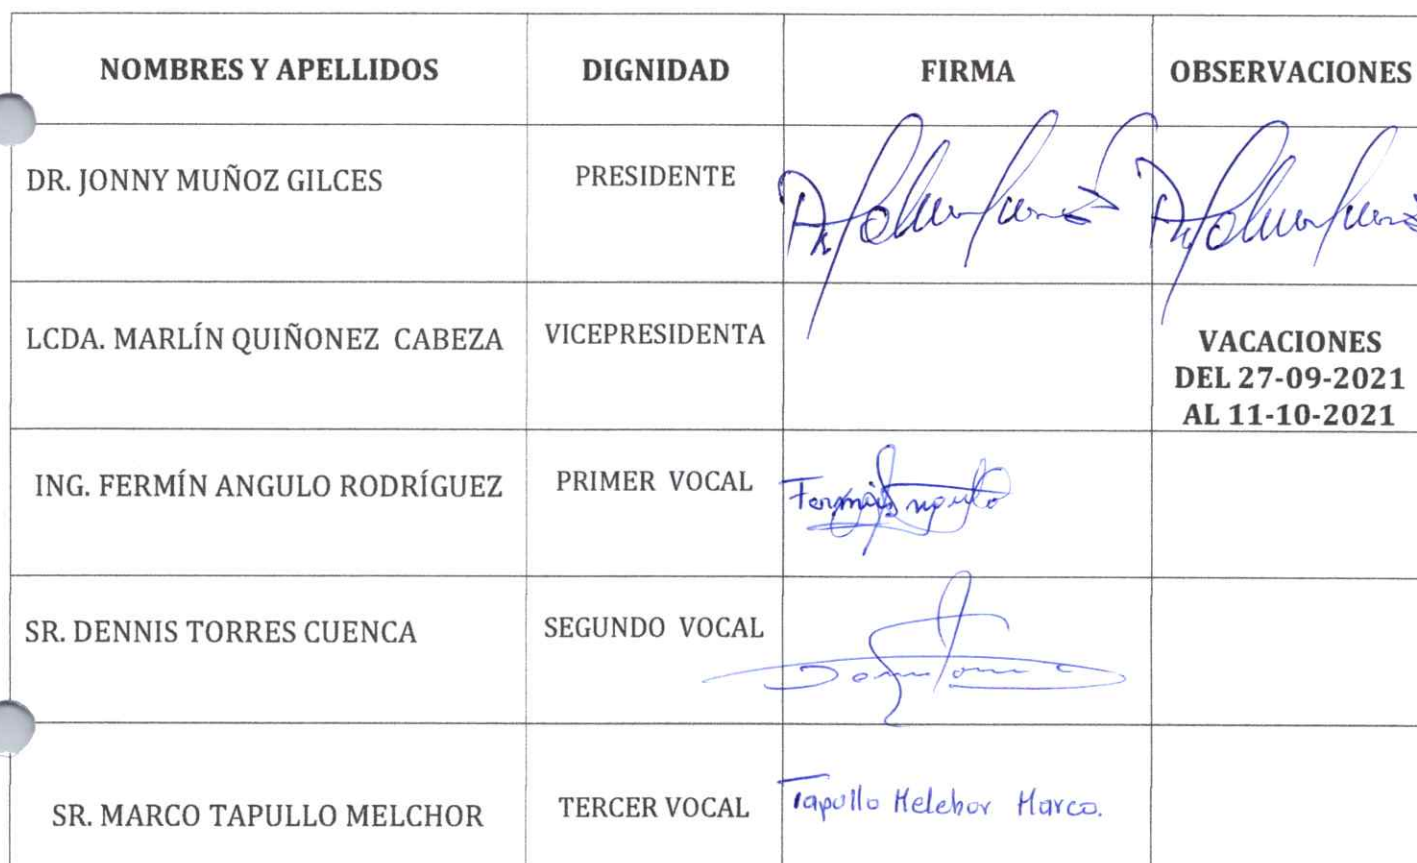 NOMBRES Y APELLIDOS DIGNIDAD FIRMA OBSERVACIONES
DR. JONNY MUÑOZ GILCES PRESIDENTE
LCDA. MARLÍN QUIÑONEZ CABEZA VICEPRESIDENTA VACACIONES
DEL 27-09-2021
AL 11-10-2021
ING. FERMÍN ANGULO RODRÍGUEZ PRIMER VOCAL Fermin Angulo
SR. DENNIS TORRES CUENCA SEGUNDO VOCAL
SR. MARCO TAPULLO MELCHOR TERCER VOCAL Tapullo Melchor Marco.